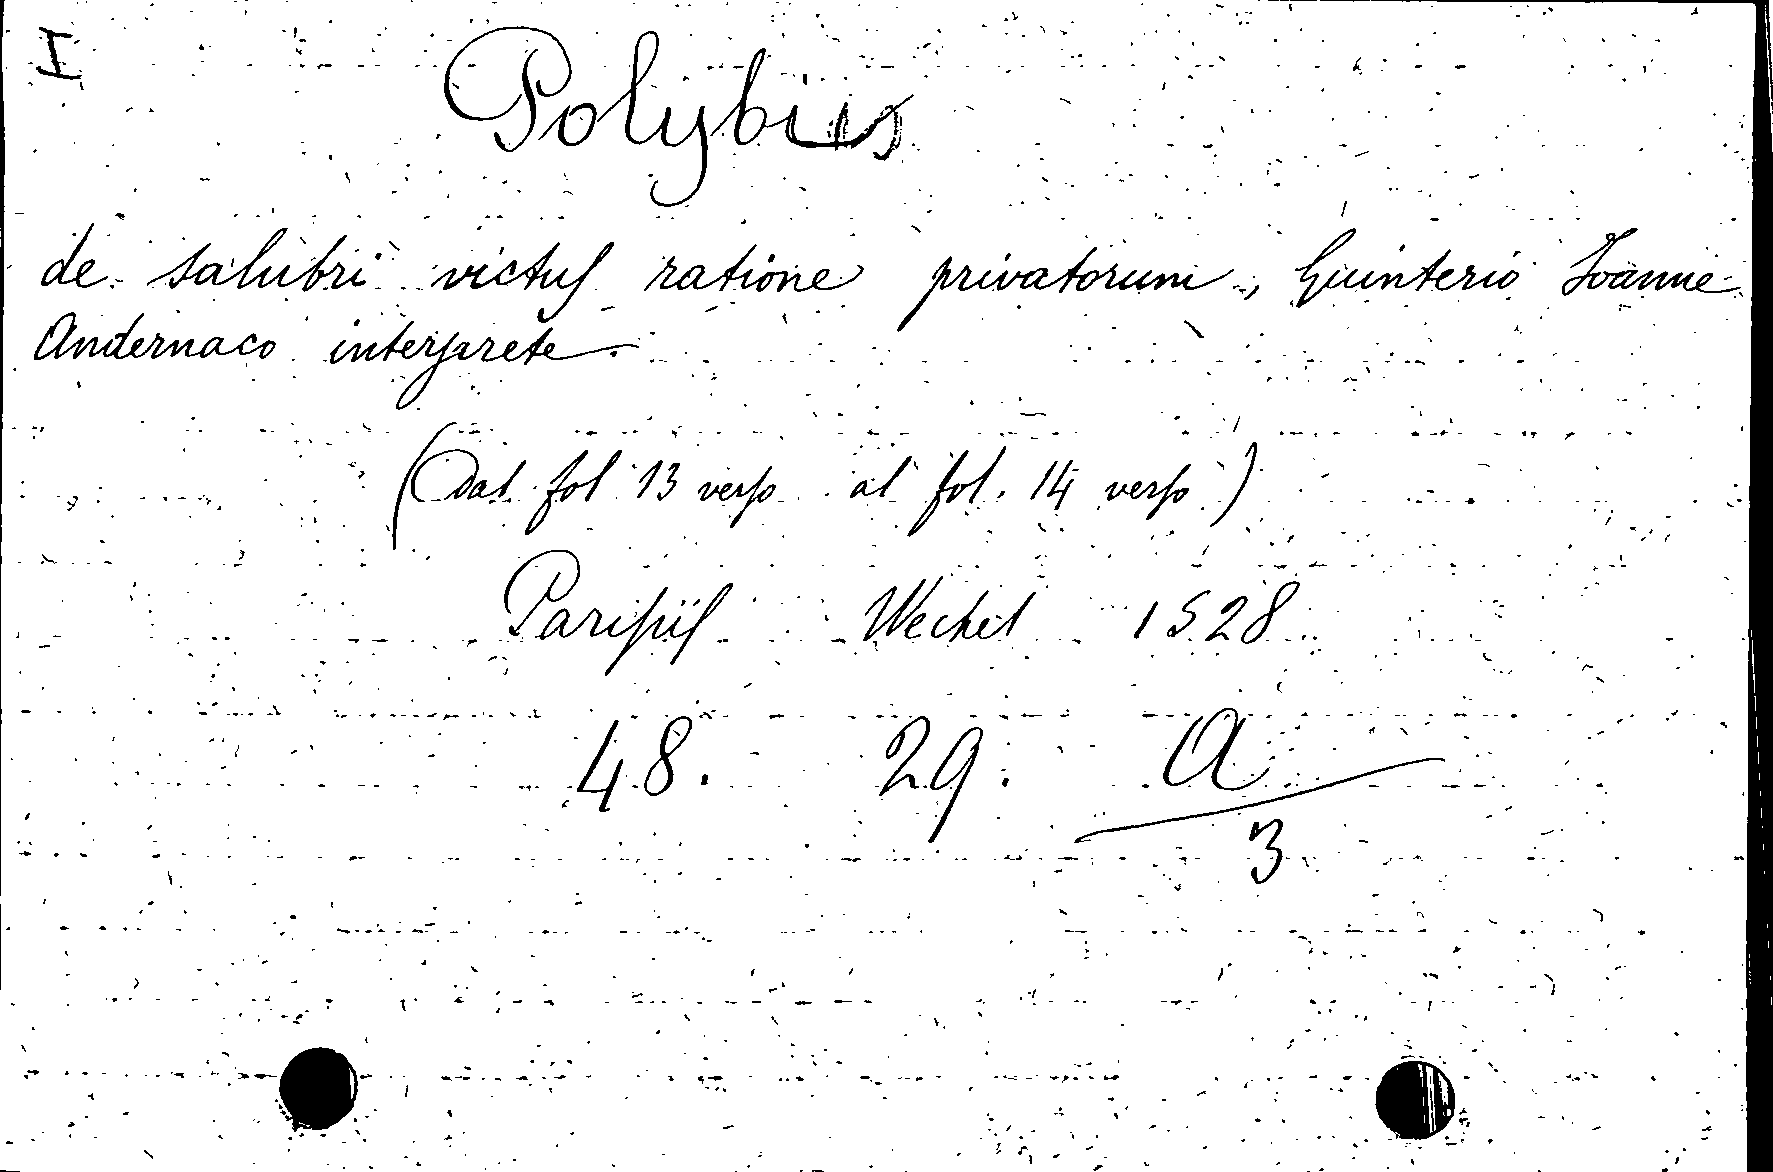 I
Polybius
de salubri victus ratione privatorum, Guinterio Joanne
Andernaco interprete.
(Dal fol 13 verso al fol. 14 verso)
Parisiis Wechel 1528
48. 29. A
3